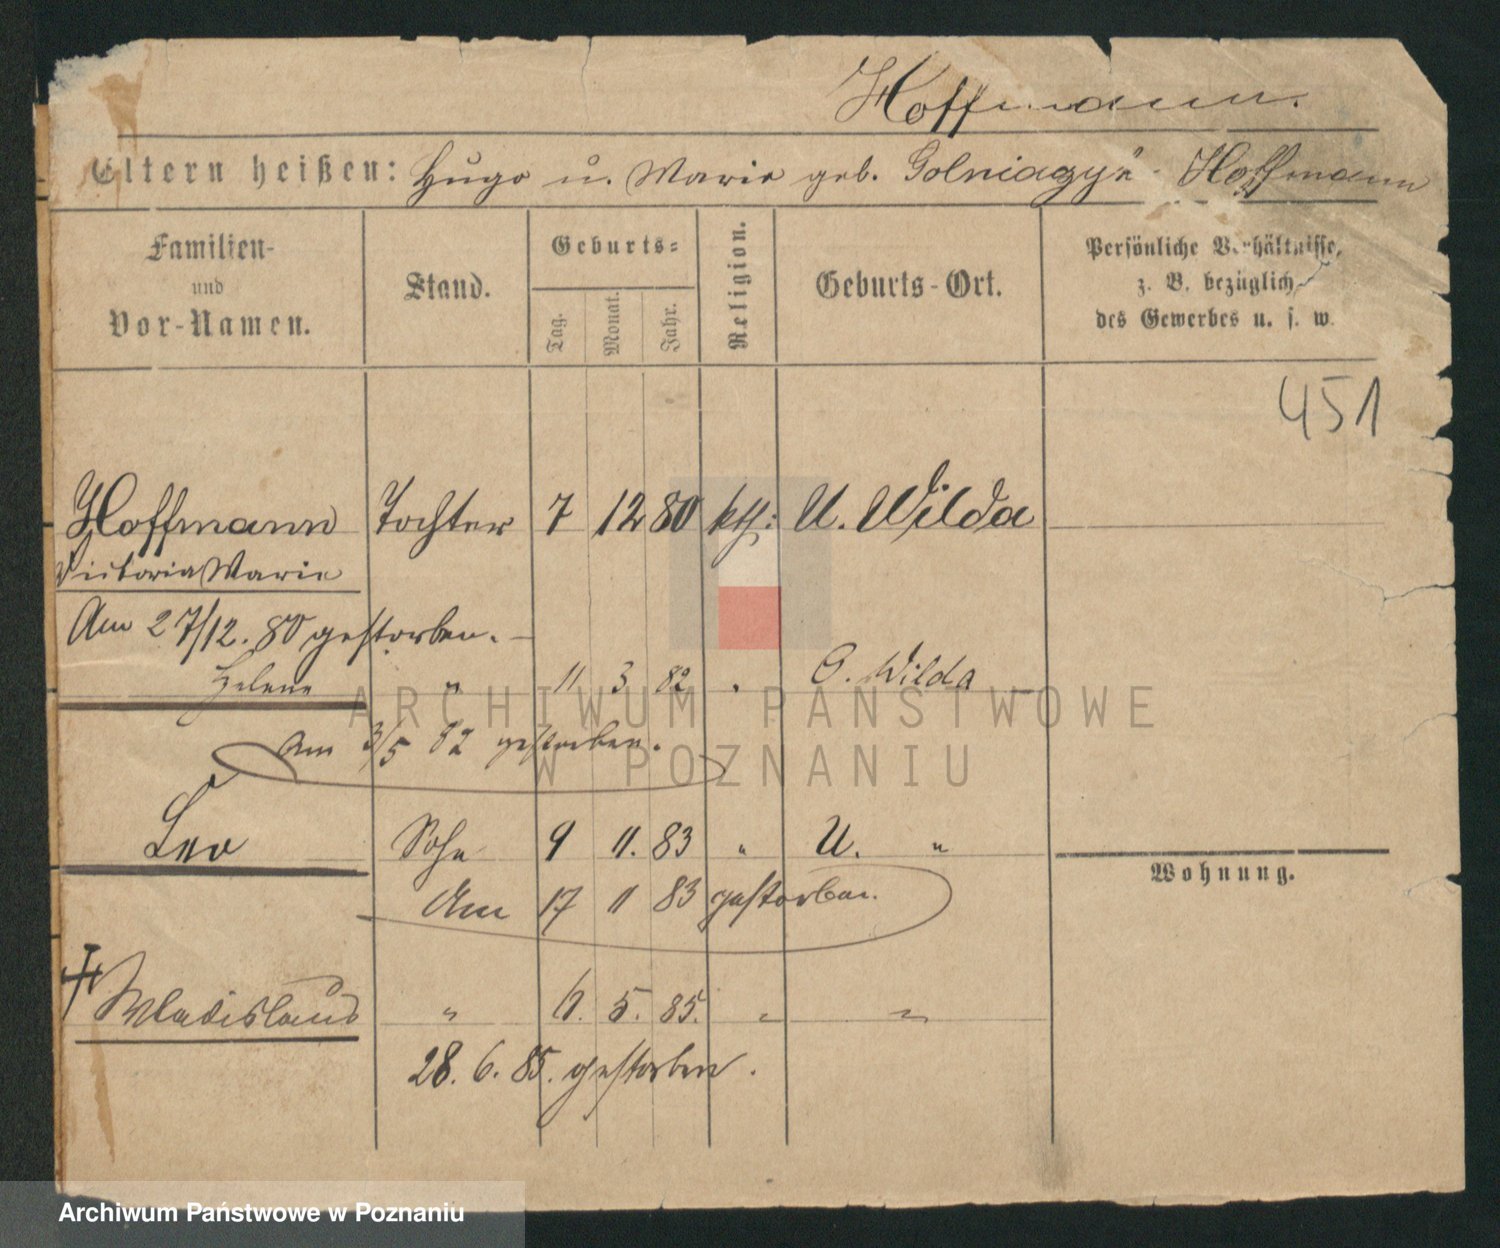 Hoffmann.
Eltern heißen: Hugo u. Marie geb. Hoffmann
Familien- und Vor-Namen.
Stand.
Geburts-
Tag.
Monat.
Jahr.
Religion.
Geburts-Ort.
Persönliche Verhältnisse,
z. B. bezüglich
des Gewerbes u. s. w.
451
Hoffmann Tochter 7 12 80 kth: U. Wilda
Victoria Marie
Am 27/12. 80 gestorben.
Helene " 11 3 82 " O. Wilda
Am 3/5 82 gestorben.
Leo Sohn 9 11. 83 " U. "
Am 17 11 83 gestorben.
Wohnung.
Wladislaus " 5. 85. " "
28. 6. 85. gestorben.
ARCHIWUM PAŃSTWOWE
W POZNANIU
Archiwum Państwowe w Poznaniu